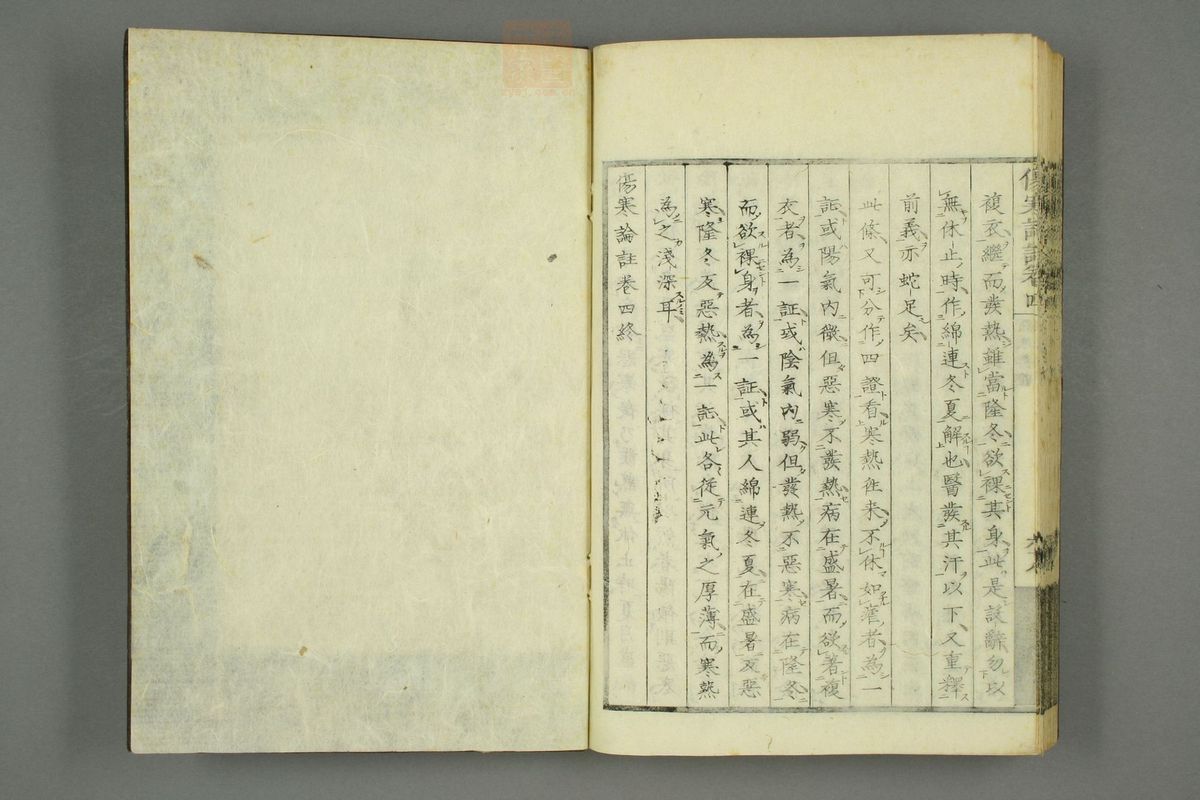 複衣繼而發熱雖當隆冬欲裸其身此是設辭勿以
無休止時作綿連冬夏解也醫發其汗以下又重釋
前義亦蛇足矣
此條又可分作四證看寒熱徃来不休如瘧者為一
証或陽氣内微但惡寒不發熱病在盛暑而欲著複
衣者為一証或陰氣内弱但發熱不惡寒病在隆冬
而欲裸身者為一証或其人綿連冬夏在盛暑反惡
寒隆冬反惡熱為一証此各従元氣之厚薄而寒熱
為之淺深耳
傷寒論註卷四終